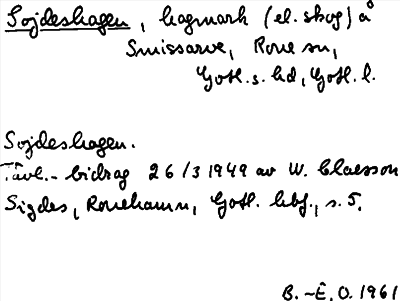 Sojdeshagen, hagmark (el. skog) å
Smissarve, Rone sn,
Gotl. s. hd, Gotl. l.
Sojdeshagen.
Tävl.-bidrag 26/3 1949 av W. Claesson
Sigdes, Ronehamn, Gotl. hbf., s. 5.
B.-E. O. 1961